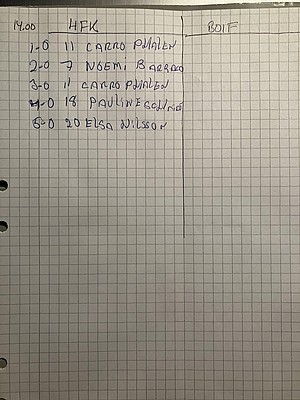 14.00 HFK BOIF
1-0 11 CARRO PIHALEN
2-0 7 NOEMI
3-0 11 CARRO PIHALEN
4-0 18 PAULINE
5-0 20 ELSA NILSSON